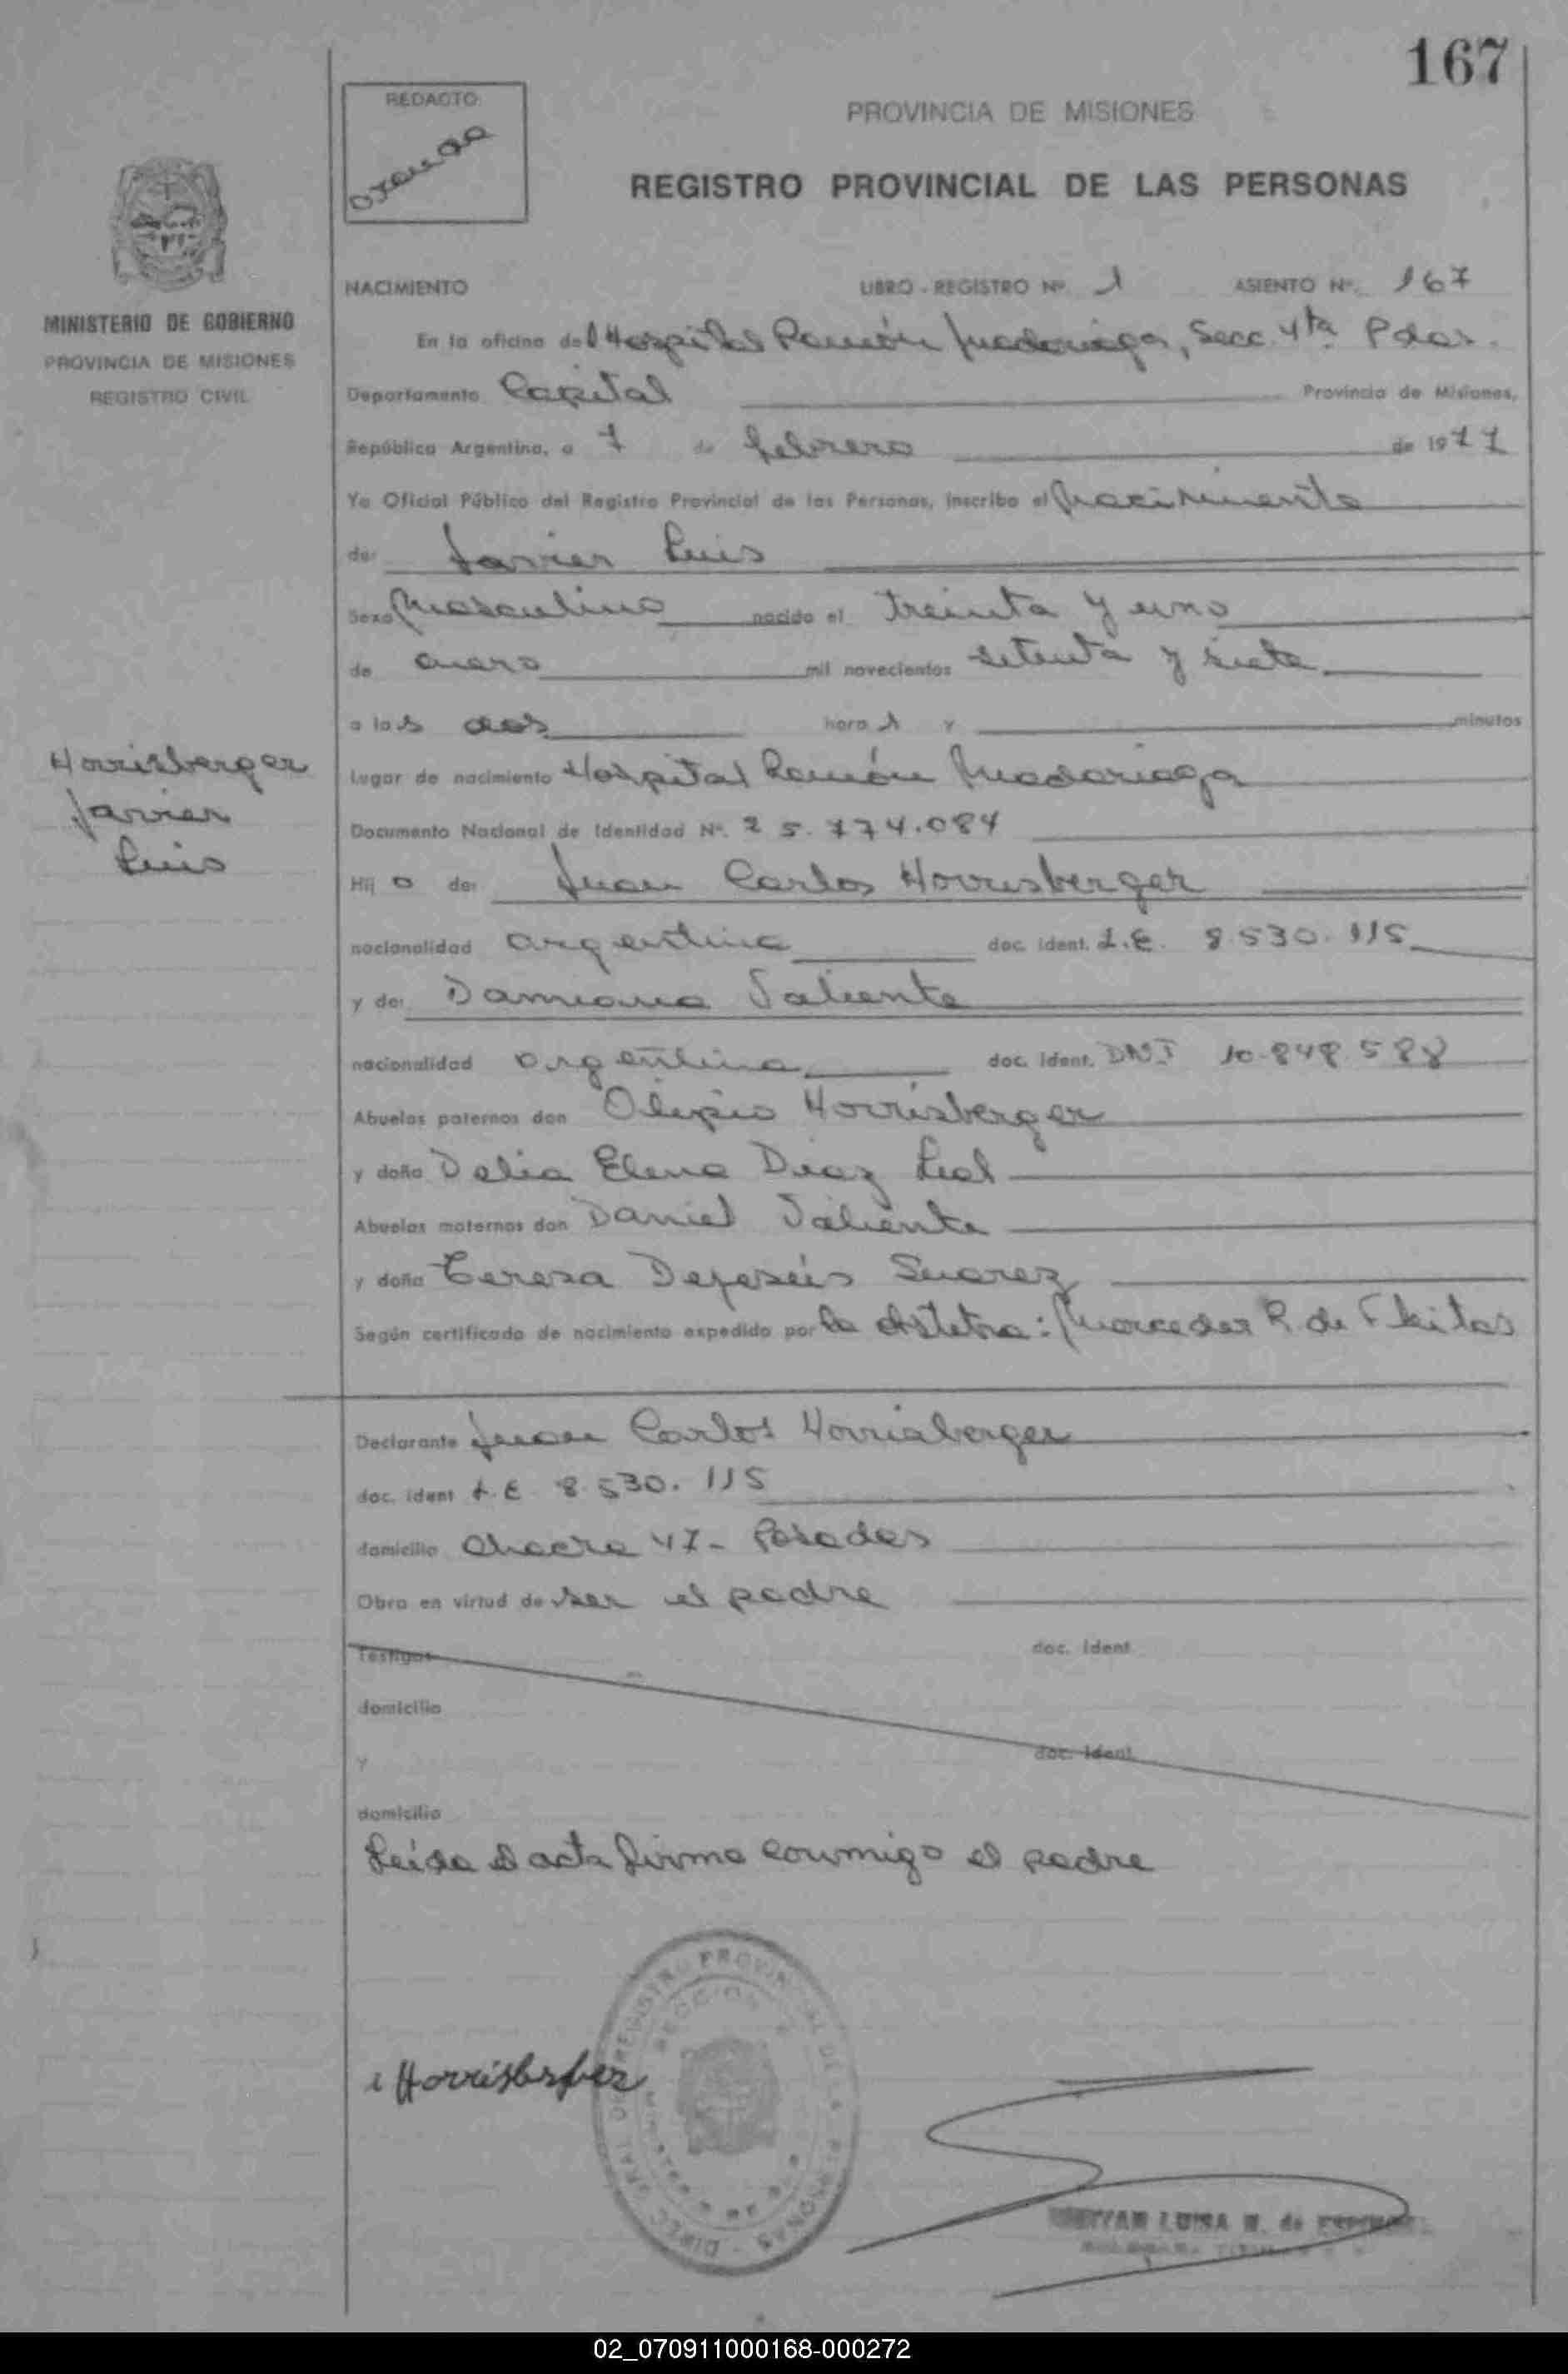 167
REDACTO
PROVINCIA DE MISIONES
REGISTRO PROVINCIAL DE LAS PERSONAS
MINISTERIO DE GOBIERNO
PROVINCIA DE MISIONES
REGISTRO CIVIL
NACIMIENTO LIBRO - REGISTRO Nº 1 ASIENTO Nº. 167
En la oficina del Hospital Ramón Madariaga, Secc. 4ta Pdas.
Departamento Capital Provincia de Misiones,
República Argentina, a 7 de febrero de 1977
Yo Oficial Público del Registro Provincial de las Personas, inscribo el nacimiento
de: Javier Luis
Sexo Masculino nacido el treinta y uno
de enero mil novecientos setenta y siete
a las dos hora s y minutos
Lugar de nacimiento Hospital Ramón Madariaga
Horrisberger
Javier
Luis
Documento Nacional de Identidad Nº. 25.774.084
Hij o de: Juan Carlos Horrisberger
nacionalidad argentina doc. ident. L.E. 8.530.115
y de: Damiana Valiente
nacionalidad argentina doc. ident. DNI 10.848.588
Abuelos paternos don Olipio Horrisberger
y doña Delia Elena Diaz Leal
Abuelos maternos don Daniel Valiente
y doña Teresa Dejesús Suarez
Según certificado de nacimiento expedido por la obstetra: Mercedes R. de
Declarante Juan Carlos Horrisberger
doc. ident L.E. 8.530.115
domicilio Chacra 47 - Posadas
Obra en virtud de ser el padre
Testigos doc. ident
domicilio
y doc. ident
domicilio
Leída el acta firma conmigo el padre
Horrisberger
DIREC. GRAL. DE REGISTRO PROVINCIAL DE LAS PERSONAS
SECCION
LUISA
02_070911000168-000272